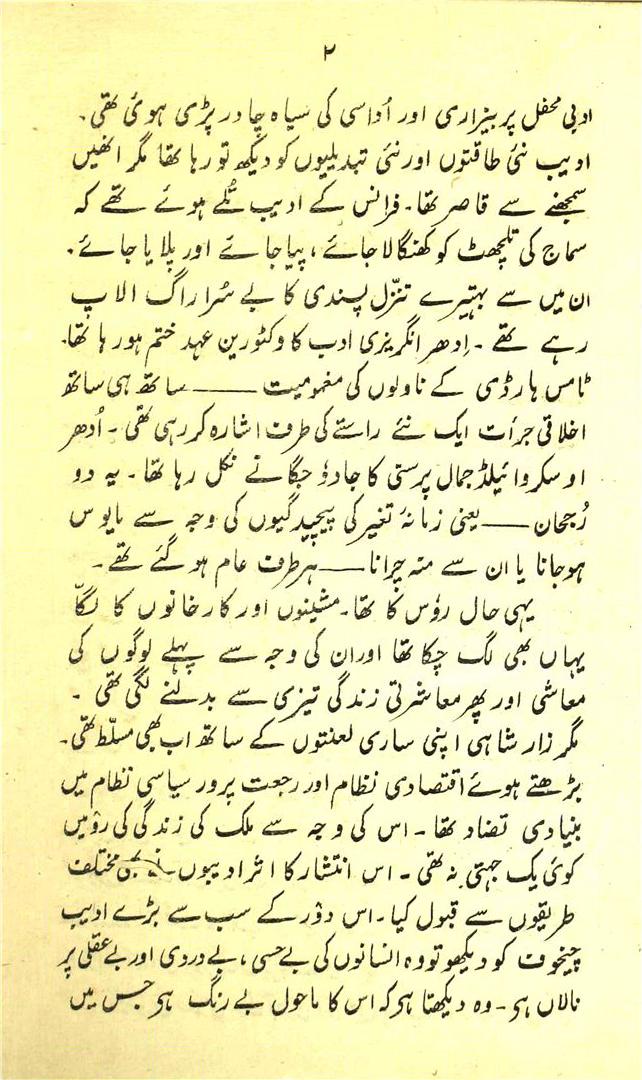 ۲
ادبی محفل پر بیزاری اور اُداسی کی سیاہ چادر پڑی ہوئی تھی۔
ادیب نئی طاقتوں اور نئی تبدیلیوں کو دیکھ تو رہا تھا مگر انھیں
سمجھنے سے قاصر تھا۔ فرانس کے ادیب تُلے ہوئے تھے کہ
سماج کی تلچھٹ کو کھنگالا جائے، پیا جائے اور پلایا جائے۔
ان میں سے بہتیرے تنزّل پسندی کا بے سُرا راگ الاپ
رہے تھے۔ اِدھر انگریزی ادب کا وکٹورین عہد ختم ہو رہا تھا۔
ٹامس ہارڈی کے ناولوں کی مغمومیت —— ساتھ ہی ساتھ
اخلاقی جرأت ایک نئے راستے کی طرف اشارہ کر رہی تھی۔ اُدھر
اوسکر وائیلڈ جمال پرستی کا جادو جگانے نکل رہا تھا۔ یہ دو
رُجحان —— یعنی زمانۂ تغیر کی پیچیدگیوں کی وجہ سے مایوس
ہو جانا یا ان سے منہ چرانا —— ہر طرف عام ہو گئے تھے۔
یہی حال روٗس کا تھا۔ مشینوں اور کارخانوں کا لگّا
یہاں بھی لگ چکا تھا اور ان کی وجہ سے پہلے لوگوں کی
معاشی اور پھر معاشرتی زندگی تیزی سے بدلنے لگی تھی۔
مگر زار شاہی اپنی ساری لعنتوں کے ساتھ اب بھی مسلّط تھی۔
بڑھتے ہوئے اقتصادی نظام اور رجعت پرور سیاسی نظام میں
بنیادی تضاد تھا۔ اس کی وجہ سے ملک کی زندگی کی رَو میں
کوئی یک جہتی نہ تھی۔ اس انتشار کا اثر ادیبوں نے مختلف
طریقوں سے قبول کیا۔ اس دَور کے سب سے بڑے ادیب
چیخوف کو دیکھو تو وہ انسانوں کی بے حسی، بے دردی اور بے عقلی پر
نالاں ہی۔ وہ دیکھتا ہی کہ اس کا ماحول بے رنگ ہی جس میں